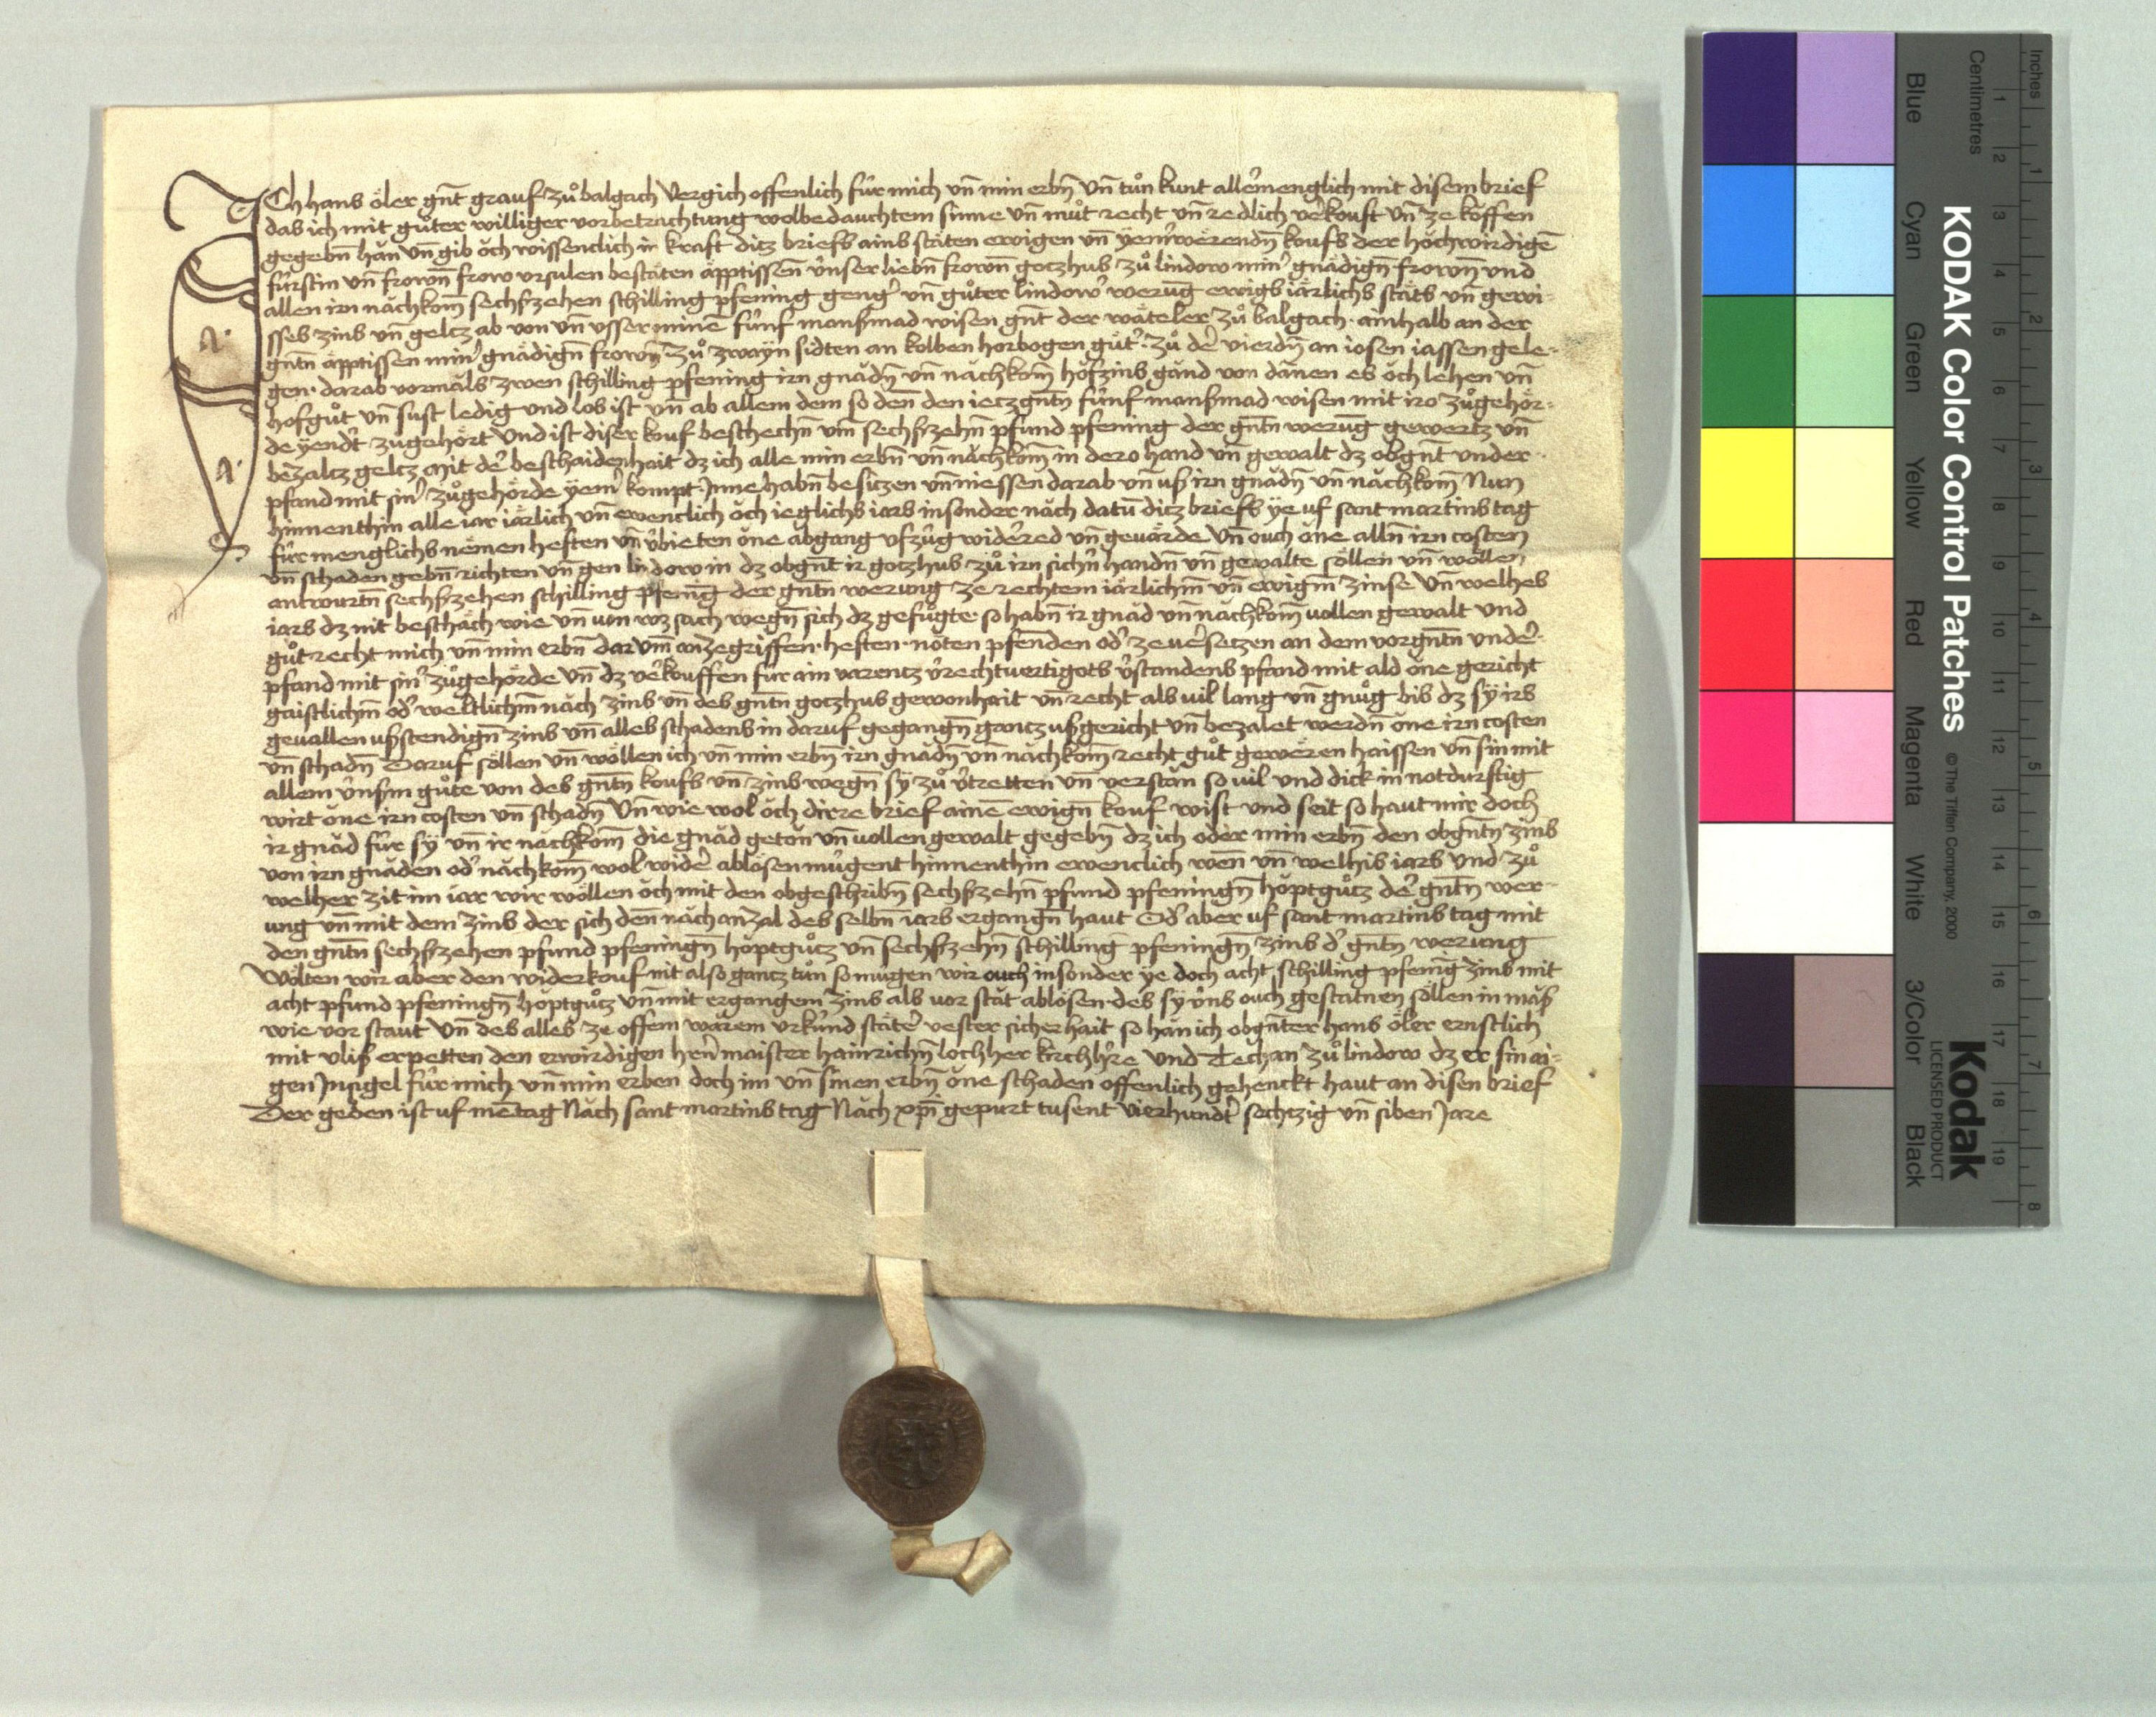 Ich hans öler gn̄t grauf zů balgach Vergich offenlich für mich vn̄ min erbn̄ vn̄ tůn kunt allermenglich mit disem brief
das ich mit gůter williger vorbetrachtung wolbedauchtem sinne vn̄ můt recht vn̄ redlich verkouft vn̄ ze köffen
gegebn̄ hăn vn̄ gib ŏch wissenclich in kraft ditz briefs ains stäten ewigen vn̄ yemerwerendn̄ koufs der hŏchwirdigē
fürstin vn̄ frown̄ frow vrsulen bestäten äpptissen v̈nser liebn̄ frown̄ gotzhus zů lindow miner gnädign̄ frown̄ vnd
allen irn năchkom̄ sechszehen schilling pfening genger vn̄ gůter lindower werūg ewigs iärlichs stäts vn̄ gewi-
sses zins vn̄ geltz ab von vn̄ vsser minē fünf mansmad wisen gn̄t der wäteler zů balgach ainhalb an der
gn̄tn äpptissen miner gnädign̄ frown̄ zů zwayn sidten an kolben horbogen gůt zů der vierdn̄ an iosen iassen gele-
gen darab vormăls zwen schilling pfening irn gnădn̄ vn̄ năchkom̄ hofzins gănd von dannen es ŏch lehen vn̄
hofgůt vn̄ sust ledig vnd los ist vn̄ ab allem dem so den den ietzgn̄tn fünf mansmad wisen mit iro zůgehör-
de yendert zugehört Vnd ist diser kouf beschechn̄ vm̄ sechszehn̄ pfund pfening der gn̄tn werūg gewertz vn̄
bezaltz geltz mit der beschaidenhait dz ich alle min erbn̄ vn̄ năchkom̄ in dero hand vn̄ gewalt dz obgn̄t vnder
pfand mit siner zůgehörde yemer kompt Inne habn̄ besitzen vn̄ niessen darab vn̄ us irn gnădn̄ vn̄ năchkom̄ Nun
hinnenthin alle iar iärlich vn̄ ewenclich ŏch ieglichs iars insonder năch datū ditz briefs ye uf sant martins tag
für menglichs nemen heften vn̄ v̈bieten ŏne abgang ufzůg widerred vn̄ geuärde vn̄ ouch ŏne alln̄ irn costen
vn̄ schaden gebn̄ richten vn̄ gen lindow in dz obgn̄t ir gotzhus zů irn sichern handn̄ vn̄ gewalte söllen vn̄ wöllen
antwurtn̄ sechszehen schilling pfenīg der gn̄tn werung ze rechtem iärlichm̄ vn̄ ewigm̄ zinse vn̄ welhes
iars dz nit beschăch wie vn̄ von wz sach wegn̄ sich dz gefůgte so habn̄ ir gnăd vn̄ năchkom̄ vollen gewalt vnd
gůt recht mich vn̄ min erbn̄ darvm̄ anzegriffen heften nöten pfenden oder ze versetzen an dem vorgn̄tn vnder-
pfand mit siner zůgehörde vn̄ dz verkouffen für ain varentz v̈rechtuertigots v̈standens pfand mit ald ŏne gericht
gaistlichm̄ oder weltlichm̄ năch zins vn̄ des gn̄tn gotzhus gewonhait vn̄ recht als uil lang vn̄ gnůg bis dz sÿ irs
geuallen usstendign̄ zins vn̄ alles schadens in daruf gegangn̄ gantz usgericht vn̄ bezalet werdn̄ ŏne irn costen
vn̄ schadn̄ Daruf söllen vn̄ wöllen ich vn̄ min erbn̄ irn gnădn̄ vn̄ năchkom̄ recht gůt geweren haissen vn̄ sin mit
allem v̈nserm gůte von des gn̄tn koufs vn̄ zins wegn̄ sÿ zů v̈tretten vn̄ verstăn so uil vnd dick in notdurftig
wirt ŏne irn costen vn̄ schadn̄ Vn̄ wie wol ŏch dirre brief ainē ewign̄ kouf wist vnd seit so haut mir doch
ir gnăd für sÿ vn̄ ir năchkom̄ die gnăd getŏn vn̄ vollen gewalt gegebn̄ dz ich oder min erbn̄ den obgn̄tn zins
von irn gnăden oder năchkom̄ wol wider ablösen mügent hinnenthin ewenclich wen vn̄ welhis iars vnd zů
welher zit im iar wir wöllen ŏch mit den obgeschribn̄ sechszehn̄ pfund pfeningn̄ hoptgůtz der gn̄tn wer-
ung vn̄ mit dem zins der sich den năch anzal des selbn̄ iars ergangn̄ haut Oder aber uf sant martins tag mit
den gn̄tn sechszehen pfund pfeningn̄ hoptgůtz vn̄ sechszehn̄ schilling pfeningn̄ zins der gn̄tn werung
Wölten wir aber den widerkouf nit also gantz tůn so mugen wir ouch insonder ye doch acht schilling pfenīg zins mit
acht pfund pfeningn̄ hoptgůtz vn̄ mit ergangem zins als vor stăt ablösen des sÿ v̈ns ouch gestatnen söllen in măs
wie vor staut Vn̄ des alles ze offem wărem vrkünd stäter vester sicherhait so hăn ich obgn̄ter hans öler ernstlich
mit vlis erpetten den erwirdigen hern̄ maister hainrichn̄ lochher kirchh're vnd Techan zů lindow dz er sin ai-
gen Insigel für mich vn̄ min erben doch im vn̄ sinen erbn̄ ŏne schaden offenlich gehenckt haut an disen brief
Der geben ist uf mētag Năch sant martins tag Năch xp̄i gepurt tusent vierhundert sechtzig vn̄ siben Jare
KODAK Color Control Patches
© The Tiffen Company, 2000
Kodak
LICENSED PRODUCT
Inches
1 2 3 4 5 6 7 8
Centimetres
1 2 3 4 5 6 7 8 9 10 11 12 13 14 15 16 17 18 19
Blue
Cyan
Green
Yellow
Red
Magenta
White
3/Color
Black